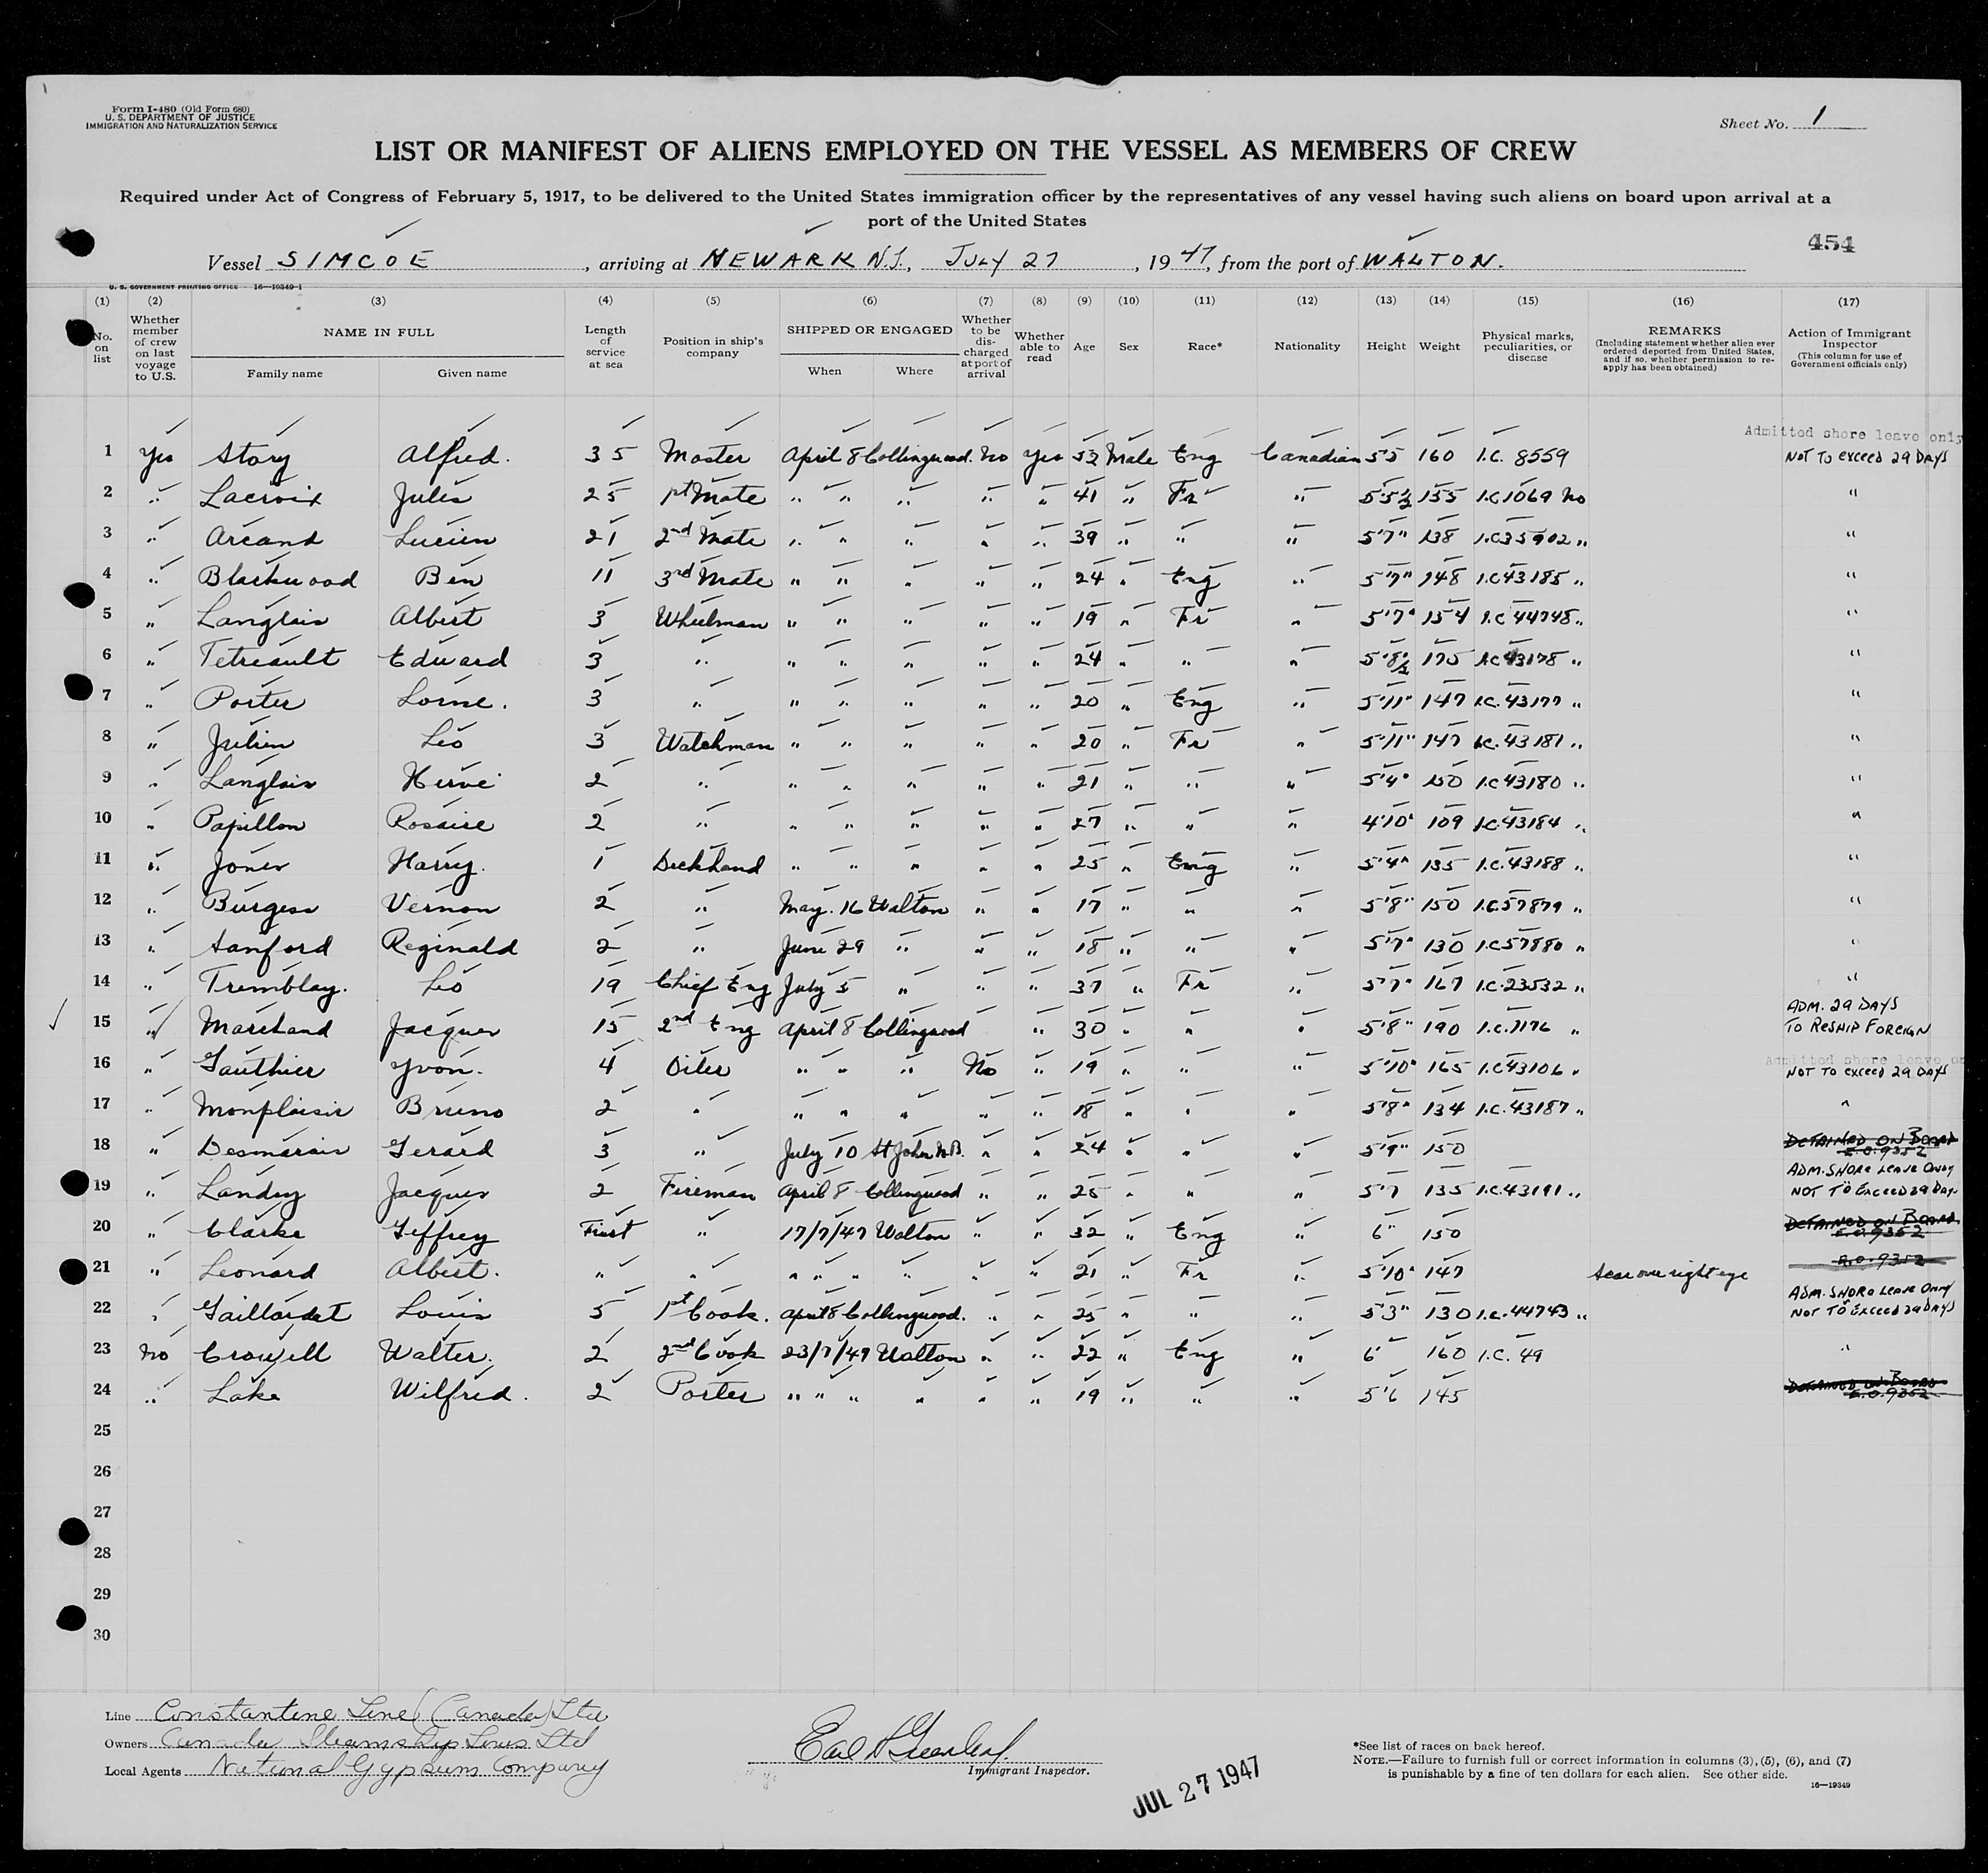 Form I-480 (Old Form 680)
U. S. DEPARTMENT OF JUSTICE
IMMIGRATION AND NATURALIZATION SERVICE
Sheet No. 1
LIST OR MANIFEST OF ALIENS EMPLOYED ON THE VESSEL AS MEMBERS OF CREW
Required under Act of Congress of February 5, 1917, to be delivered to the United States immigration officer by the representatives of any vessel having such aliens on board upon arrival at a
port of the United States
454
Vessel SIMCOE, arriving at NEWARK N.J., JULY 27, 1947, from the port of WALTON.
U. S. GOVERNMENT PRINTING OFFICE 16—19349-1
(1) (2) (3) (4) (5) (6) (7) (8) (9) (10) (11) (12) (13) (14) (15) (16) (17)
No. on list
Whether member of crew on last voyage to U.S.
NAME IN FULL
Family name
Given name
Length of service at sea
Position in ship's company
SHIPPED OR ENGAGED
When
Where
Whether to be discharged at port of arrival
Whether able to read
Age
Sex
Race*
Nationality
Height
Weight
Physical marks, peculiarities, or disease
REMARKS
(Including statement whether alien ever ordered deported from United States, and if so, whether permission to reapply has been obtained)
Action of Immigrant Inspector
(This column for use of Government officials only)
Admitted shore leave only
1 Yes Story Alfred. 35 Master April 8 Collingwood. No Yes 53 Male Eng Canadian 5'5 160 I.C. 8559 NOT TO exceed 29 DAYS
2 " Lacroix Jules 25 1st Mate " " " " " 41 " Fr " 5'5½ 155 I.C 1069 No "
3 " Arcand Lucien 21 2nd Mate " " " " " 39 " " " 5'7" 138 I.C 35902 " "
4 " Blackwood Ben 11 3rd Mate " " " " " 24 " Eng " 5'7" 148 I.C 43185 " "
5 " Langlais Albert 3 Wheelman " " " " " 19 " Fr " 5'7" 154 I.C 44748 " "
6 " Tetreault Edward 3 " " " " " " 24 " " " 5'8½ 175 I.C 43178 " "
7 " Porter Lorne. 3 " " " " " " 20 " Eng " 5'11" 147 I.C. 43177 " "
8 " Julien Léo 3 Watchman " " " " " 20 " Fr " 5'11" 147 I.C. 43181 " "
9 " Langlais Hervé 2 " " " " " " 21 " " " 5'4" 150 I.C 43180 " "
10 " Papillon Rosaire 2 " " " " " " 27 " " " 4'10" 109 I.C 43184 " "
11 " Jones Harry. 1 Deckhand " " " " " 25 " Eng " 5'4" 135 I.C. 43188 " "
12 " Burgess Vernon 2 " May. 16 Walton " " 17 " " " 5'8" 150 I.C. 57879 " "
13 " Sanford Reginald 2 " June 29 " " " 18 " " " 5'7" 130 I.C 57880 " "
14 " Tremblay. Léo 19 Chief Eng July 5 " " " 37 " Fr " 5'7" 167 I.C. 23532 " "
ADM. 29 DAYS
15 " Marchand Jacques 15 2nd Eng April 8 Collingwood " 30 " " " 5'8" 190 I.C. 7176 " TO RESHIP FOREIGN
Admitted shore leave
16 " Gauthier Yvon. 4 Oiler " " " No " 19 " " " 5'10" 165 I.C 43106 " NOT TO exceed 29 DAYS
17 " Monplaisir Bruno 2 " " " " " " 18 " " " 5'8" 134 I.C. 43187 " "
18 " Desmarais Gerard 3 " July 10 St John N.B. " " 24 " " " 5'9" 150 DETAINED ON BOARD
E.O. 9352
ADM. SHORE LEAVE ONLY
19 " Landry Jacques 2 Fireman April 8 Collingwood " " 25 " " " 5'7 135 I.C. 43191 " NOT TO Exceed 29 Day
20 " Clarke Geffrey First " 17/7/47 Walton " " 32 " Eng " 6" 150 DETAINED ON BOARD
E.O. 9352
21 " Leonard Albert. " " " " " " " " 21 " Fr " 5'10" 147 Scar over right eye E.O. 9352
ADM. SHORE LEAVE ONLY
22 " Gaillardet Louis 5 1st Cook. April 8 Collingwood. " " 25 " " " 5'3" 130 I.C. 44743 " NOT TO Exceed 29 DAYS
23 No Crowell Walter. 2 2nd Cook 23/7/47 Walton " " 22 " Eng " 6' 160 I.C. 49 "
24 " Lake Wilfred. 2 Porter " " " " " " 19 " " " 5'6 145 DETAINED ON BOARD
E.O. 9352
25
26
27
28
29
30
Line Constantine Line (Canada) Ltd
Owners Canada Steamship Lines Ltd
Local Agents National Gypsum Company
Immigrant Inspector.
JUL 27 1947
*See list of races on back hereof.
NOTE.—Failure to furnish full or correct information in columns (3), (5), (6), and (7)
is punishable by a fine of ten dollars for each alien. See other side.
16—19349